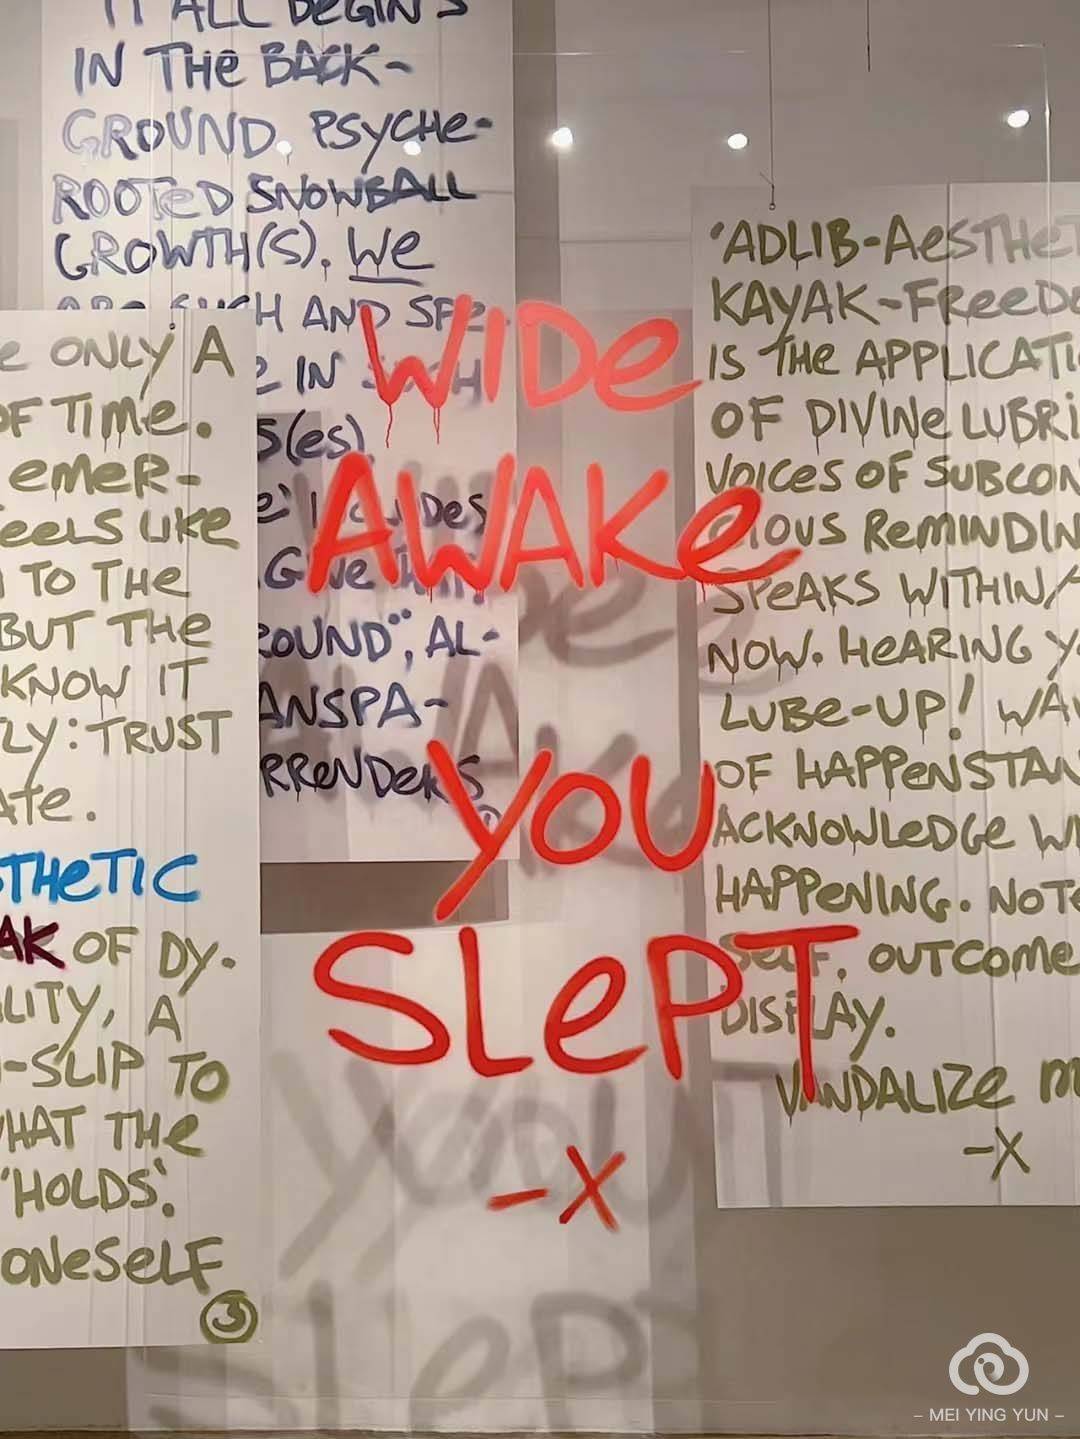 IT ALL BEGINS
IN THE BACK-
GROUND. PSYCHE-
ROOTED SNOWBALL
GROWTH(S). WE
ARE SUCH AND SPE
IN SUCH
S(es).
Des
GIVE
ROUND", AL-
ANSPA-
RRENDERS
1
ONLY A
OF TIME.
EMER-
FEELS LIKE
TO THE
BUT THE
KNOW IT
LY: TRUST
ATE.
STHETIC
AK OF DY-
LITY, A
-SLIP TO
WHAT THE
'HOLDS'.
ONESELF
3
WIDE
AWAKE
YOU
SLEPT
-X
'ADLIB-AESTHET
KAYAK-FREEDO
IS THE APPLICATI
OF DIVINE LUBRI
VOICES OF SUBCON
CIOUS REMINDIN
SPEAKS WITHIN/
NOW. HEARING Y
LUBE-UP! WAV
OF HAPPENSTAN
ACKNOWLEDGE WH
HAPPENING. NOTE
SELF, OUTCOME
DISPLAY.
VANDALIZE M
-X
– MEI YING YUN –